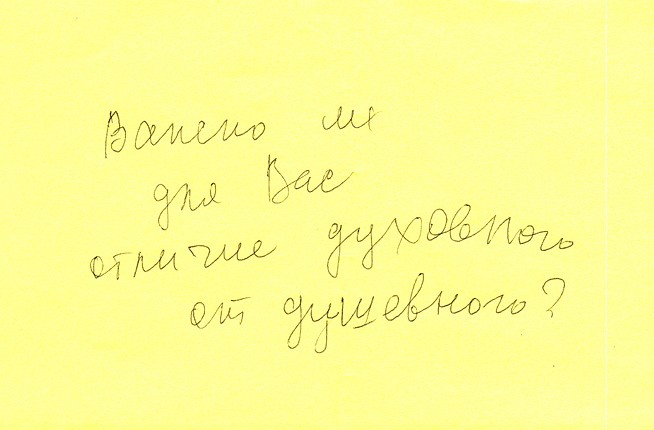 Важно ли
для Вас
отличие духовного
от душевного?